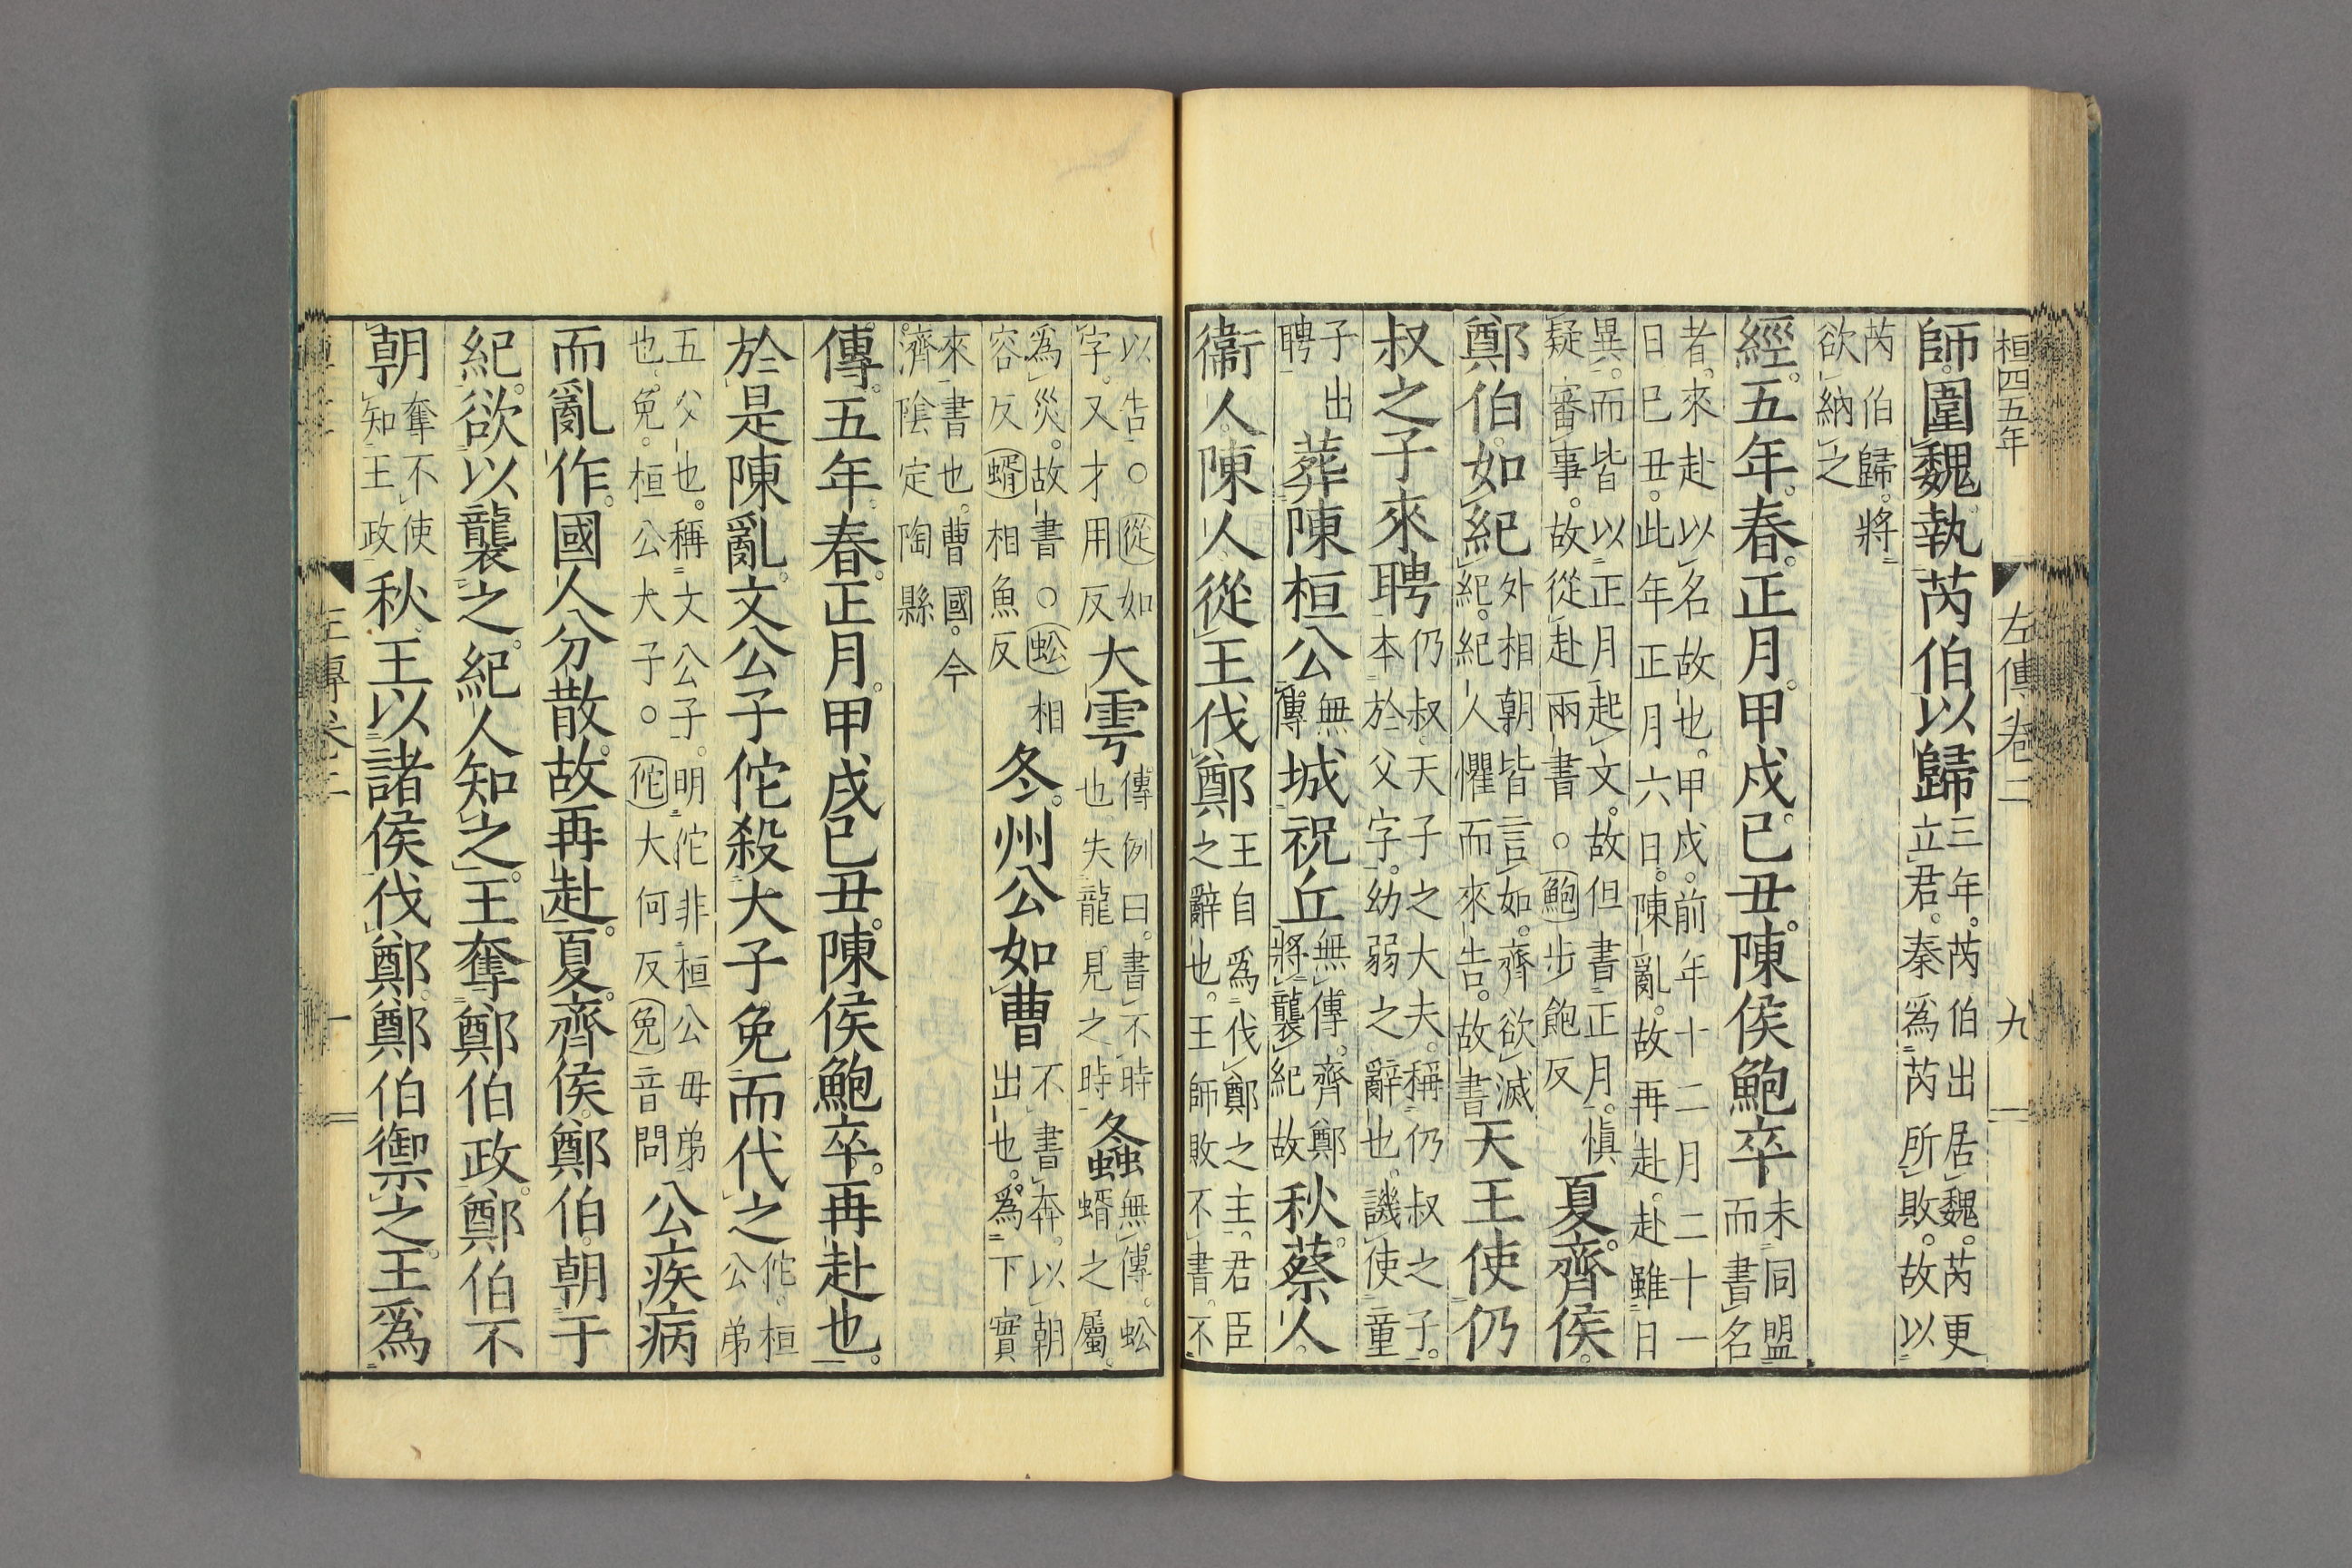 桓四五年 左傳卷二 九
師圍魏執芮伯以歸三年芮伯出居魏芮更立君秦爲芮所敗故以
芮伯歸將欲納之
經五年春正月甲戌己丑陳侯鮑卒未同盟而書名
者來赴以名故也甲戌前年十二月二十一日己丑此年正月六日陳亂故再赴赴雖日
異而皆以正月起文故但書正月愼疑審事故從赴兩書○鮑步飽反夏齊侯
鄭伯如紀外相朝皆言如齊欲滅紀紀人懼而來告故書天王使仍
叔之子來聘仍叔天子之大夫稱仍叔之子本於父字幼弱之辭也譏使童
子出聘葬陳桓公無傳城祝丘無傳齊鄭將襲紀故秋蔡人
衞人陳人從王伐鄭王自爲伐鄭之主君臣之辭也王師敗不書不
以告○從如字又才用反大雩傳例曰書不時也失龍見之時螽無傳蚣蝑之屬
爲災故書○蚣相容反蝑相魚反冬州公如曹不書奔以朝出也爲下實
來書也曹國今濟陰定陶縣
傳五年春正月甲戌己丑陳侯鮑卒再赴也
於是陳亂文公子佗殺大子免而代之佗桓公弟
五父也稱文公子明佗非桓公母弟也免桓公大子○佗大何反免音問公疾病
而亂作國人分散故再赴夏齊侯鄭伯朝于
紀欲以襲之紀人知之王奪鄭伯政鄭伯不
朝奪不使知王政秋王以諸侯伐鄭鄭伯禦之王爲
左傳卷二